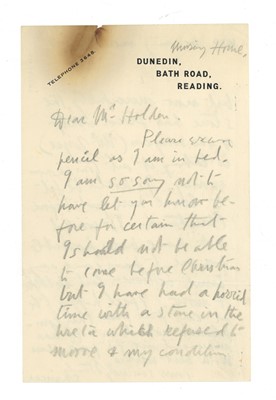 Nursing Home,
TELEPHONE 2845.
DUNEDIN,
BATH ROAD,
READING.
Dear Mr Holden.
Please excuse
pencil as I am in bed.
I am so sorry not to
have let you know be-
fore for certain that
I should not be able
to come before Christmas
but I have had a horrid
time with a stone in the
which refused to
move & my condition